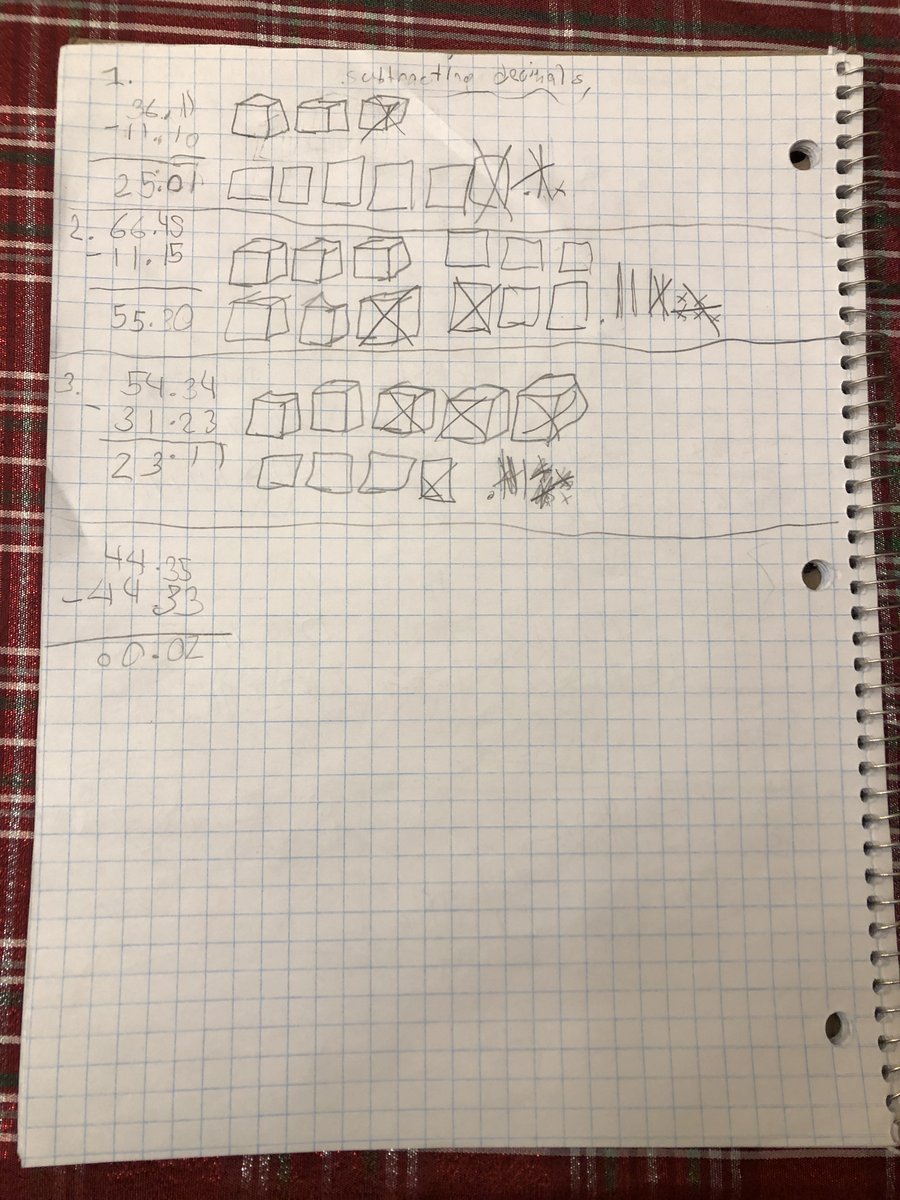 subtracting decimals,
1.
36.11
-11.10
25.01
2. 66.45
-11.15
55.30
3. 54.34
- 31.23
23.11
44.35
-44.33
00.02